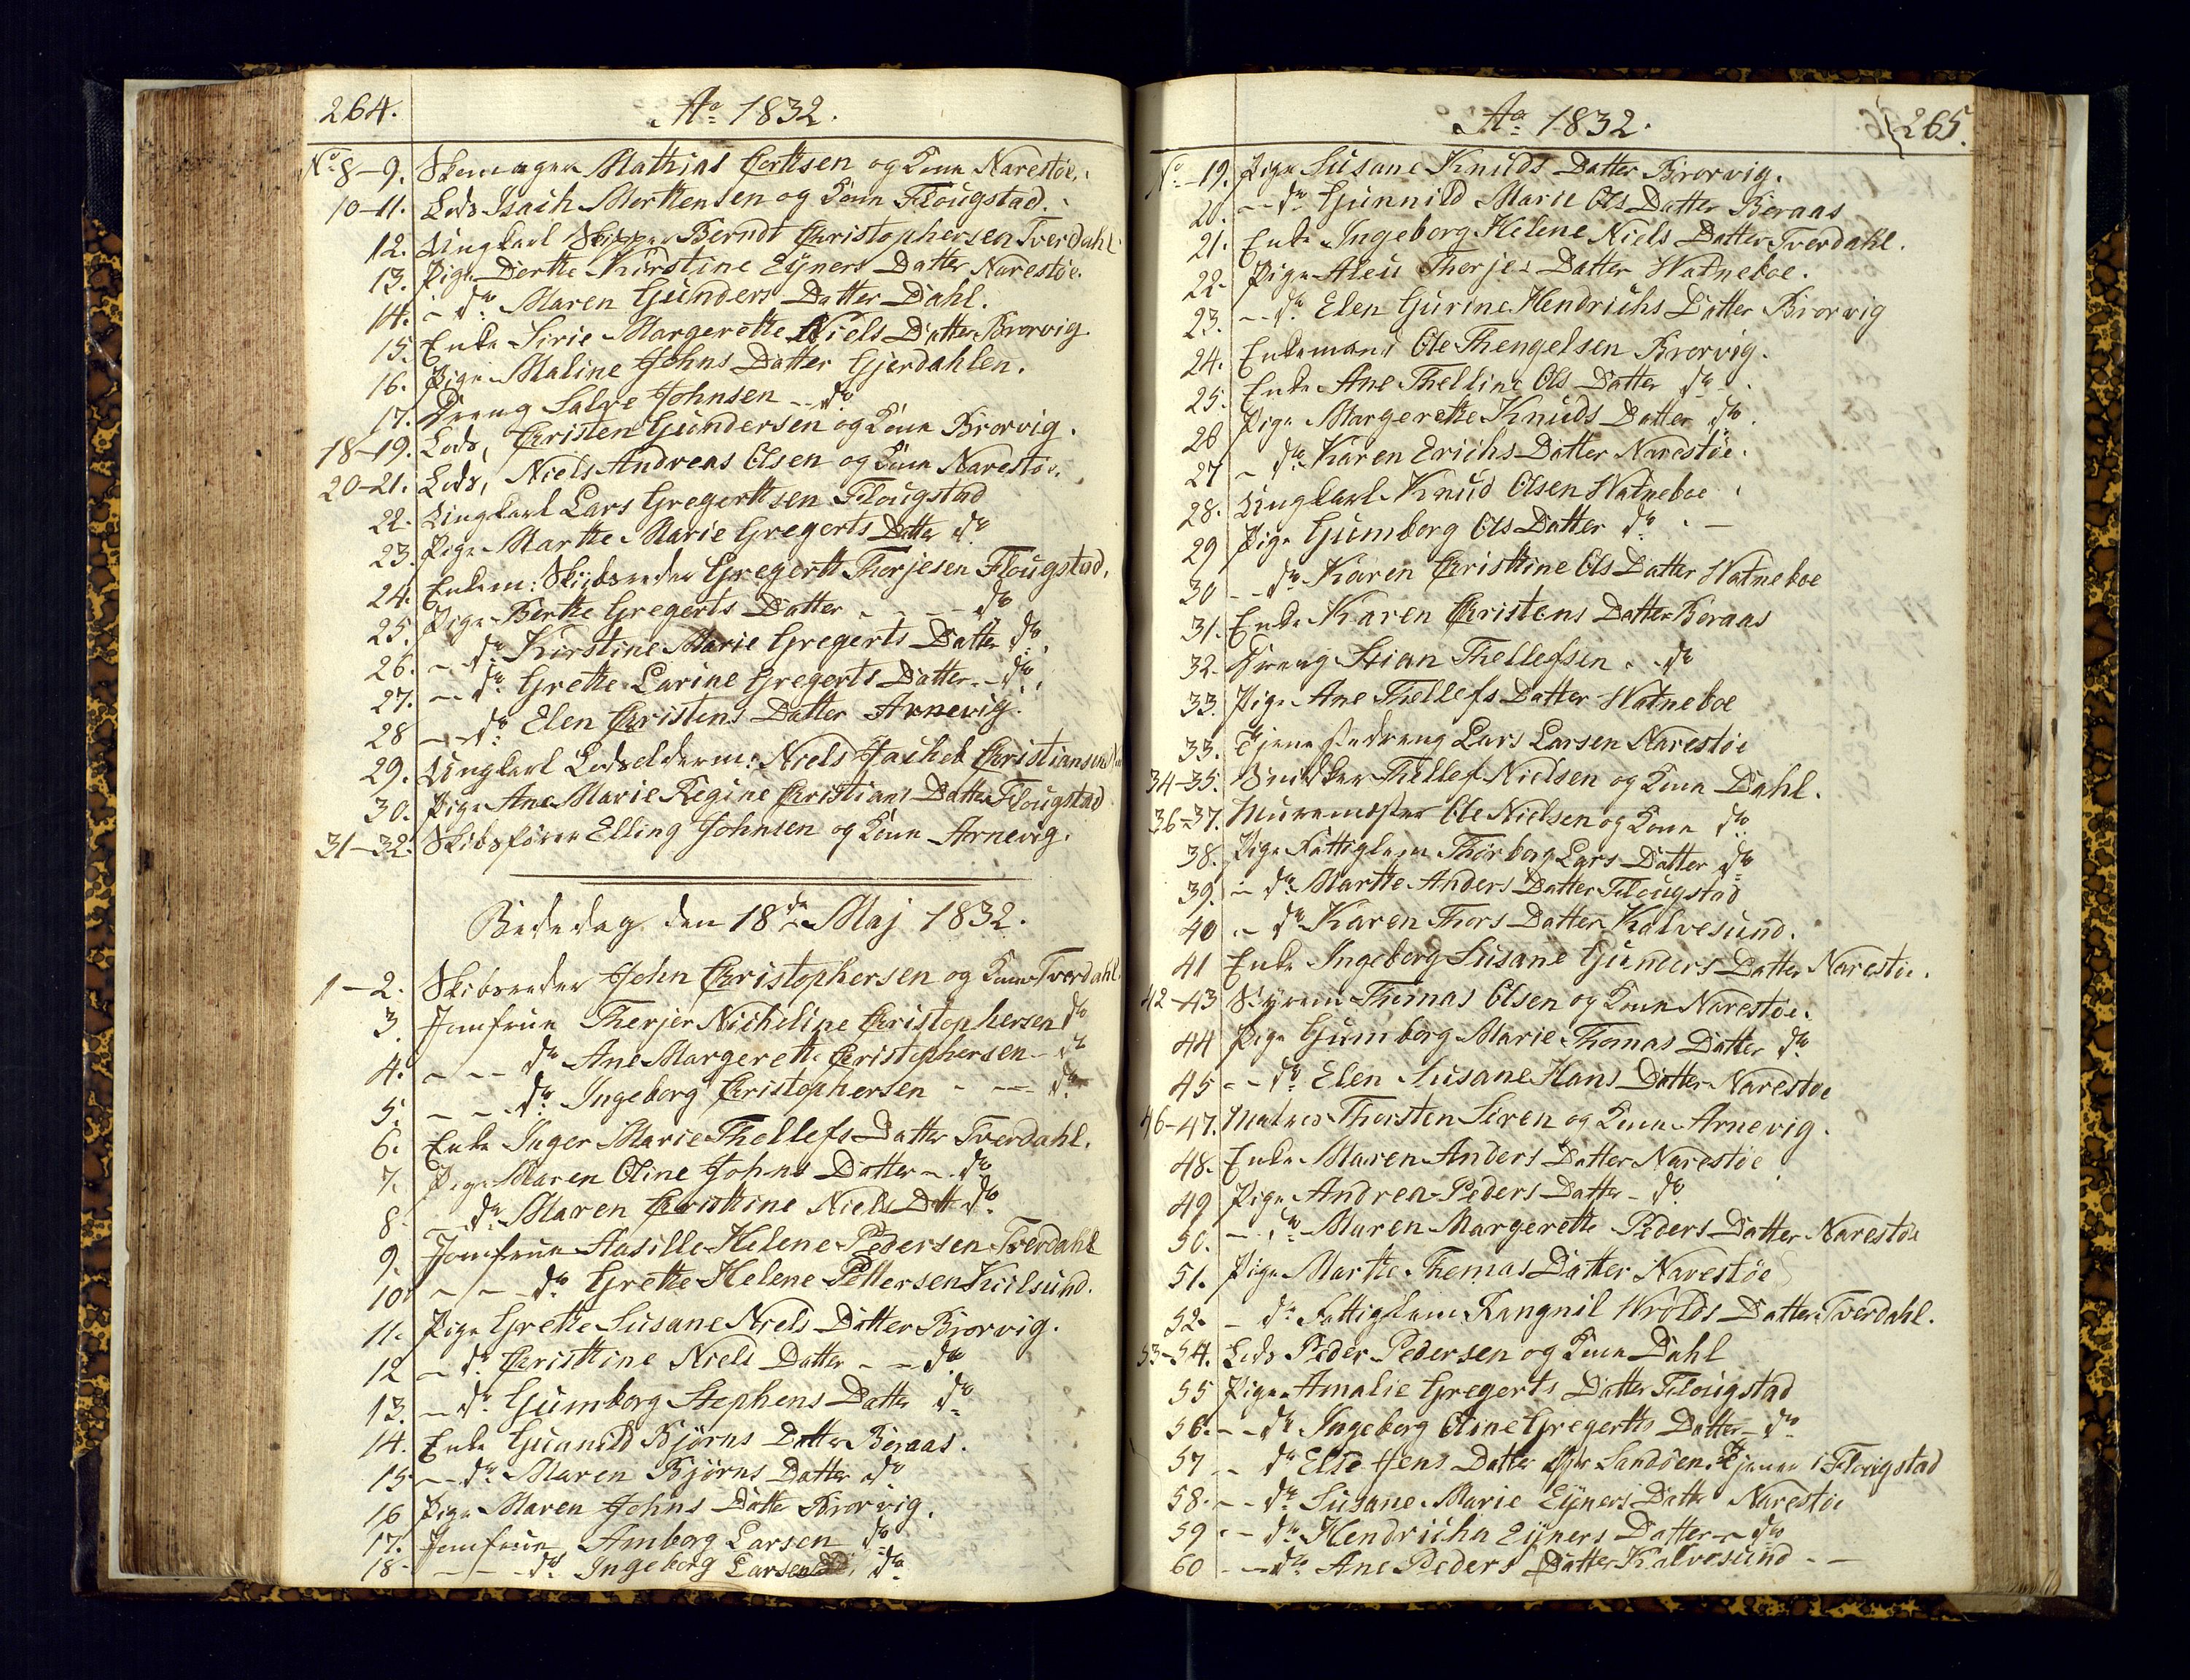 264.
Ao 1832.
No 8-9. Skomager Mathias Ertsen og Kone Narestøe.
10-11. Lods Isach Mortensen og Kone Flougstad.
12. Ungkarl Skipper Berndt Christophersen Tverdahl
13. Pige Dorthe Kirstine Eÿners Datter Narestøe.
14. - do Maren Gunders Datter Dahl.
15. Enke Sirie Margrethe Niels Datter Brorvig
16. Pige Maline Johns Datter Gjerdahlen.
17. Dreng Salve Johnsen - do
18-19. Lods, Christen Gundersen og Kone Brorvig.
20-21. Lods, Niels Andreas Olsen og Kone Narestøe.
22. Ungkarl Lars Gregertsen Flougstad
23. Pige Marthe Marie Gregerts Datter do
24. Enkem: Skibsreder Gregert Therjesen Flougstad.
25. Pige Berthe Gregerts Datter - - - do
26. - do Kirstine Marie Gregerts Datter do
27. - do Grethe Larine Gregerts Datter - do
28 - do Elen Christens Datter Arnevig.
29. Ungkarl Lodsolderm: Niels Jachob
30. Pige Ane Marie Regine Christians Datter Flougstad
31-32. Skibsfører Elling Johnsen og Kone Arnevig.
Bededag den 18de Maj 1832.
1-2. Skibsreder John Christophersen og Kone Tverdahl
3. Jomfrue Therjer Nicheline Christophersen do
4. - - do Ane Margerethe Christophersen - do
5. - - do Ingeborg Christophersen - - do
6. Enke Inger Marie Thellefs Datter Tverdahl.
7. Pige Maren Oline Johns Datter - do
8. - do Maren Christine Niels Datt do
9. Jomfrue Aasille Helene Pedersen Tverdahl
10. - - do Grethe Helene Pettersen Kiilsund.
11. Pige Grethe Susane Niels Datter Brorvig.
12 - do Christine Niels Datter - - do
13. - do Gumborg Stephens Datter do
14. Enke Gunnild Bjørns Datter Boraas.
15 - do Maren Bjørns Datter do
16 Pige Maren Johns Datter Brorvig.
17. Jomfrue Amborg Larsen do
18 - - - do Ingeborg Larsen do
Ao 1832.
265.
No - 19. Pige Susane Knuds Datter Brorvig.
20. - do Gunnild Marie Ols Datter Boraas
21. Enke Ingeborg Helene Niels Datter Tverdahl.
22. Pige Aleu Therjes Datter Watneboe.
23. - do Elen Gurine Hendrichs Datter Brorvig
24. Enkemand Ole Thengelsen Brorvig.
25. Enke Ane Thelline Ols Datter do
26 Pige Margerethe Knuds Datter do
27 - do Karen Erichs Datter Narestøe.
28. Ungkarl Knud Olsen Watneboe
29 Pige Gumborg Ols Datter do -
30 - - do Karen Christine Ols Datter Watneboe
31. Enke Karen Christens Datter Boraas
32. Dreng Stian Thellefsen - do
33. Pige Ane Thellefs Datter Watneboe
33. Tjenestedreng Lars Larsen Narestøe
34-35. Snidker Thellef Nielsen og Kone Dahl.
36-37. Muremester Ole Nielsen og Kone do
38. Pige Fattiglem Thorborg Lars Datter do
39. - do Marthe Anders Datter Flougstad
40 - do Karen Thors Datter Kalvesund.
41 Enke Ingeborg Susane Gunders Datter Narestøe.
42-43 Thomas Olsen og Kone Narestøe.
44 Pige Gumborg Marie Thomas Datter do
45 - - do Elen Susane Hans Datter Narestøe
46-47. Matros Thorsten Soren og Kone Arnevig.
48. Enke Maren Anders Datter Narestøe
49 Pige Andrea Peders Datter - do
50. - do Maren Margerethe Peders Datter Narestøe
51. Pige Marthe Thomas Datter Narestøe
52. - do Fattiglem Rangnil Wrolds Datter Tverdahl.
53-54. Lods Peder Pedersen og Kone Dahl
55 Pige Amalie Gregerts Datter Flougstad
56. - - do Ingeborg Oline Gregerths Datter - do
57 - do Else Jens Datter Sandøen, Tjener i Flougstad
58. - - do Susane Marie Eÿners Datter Narestøe
59 - - do Hendricha Eÿners Datter - do
60 - - do Ane Peders Datter Kalvesund - -